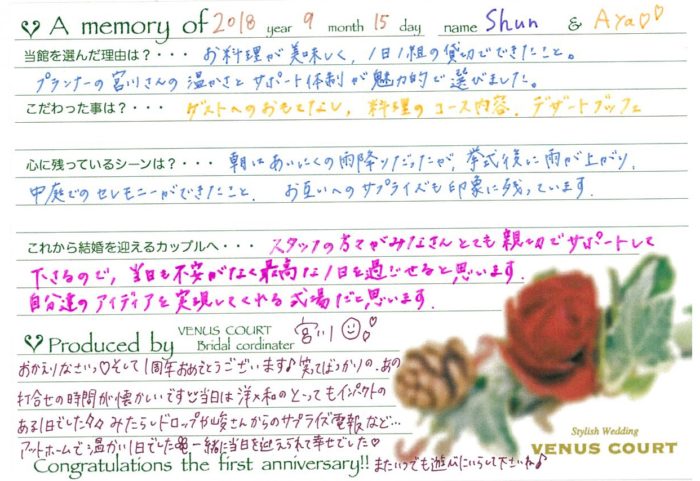 A memory of 2018 year 9 month 15 day name Shun & Aya♡♡
当館を選んだ理由は？・・・ お料理が美味しく、1日1組の貸切でできたこと。
プランナーの宮川さんの温かさとサポート体制が魅力的で選びました。
こだわった事は？・・・ ゲストへのおもてなし、料理のコース内容、デザートブッフェ
心に残っているシーンは？・・・ 朝はあいにくの雨降りだったが、挙式後に雨が上がり、
中庭でのセレモニーができたこと、 お互いへのサプライズも印象に残っています。
これから結婚を迎えるカップルへ・・・ スタッフの方々がみなさんとても親切でサポートして
下さるので、当日も不安がなく最高な1日を過ごせると思います。
自分達のアイディアを実現してくれる式場だと思います。
Produced by VENUS COURT Bridal cordinater 宮川
おかえりなさいっ♡そして1周年おめでとうございます♪笑ってばっかりの、あの
打合せの時間が懐かしいです 当日は洋×和のとってもインパクトの
ある1日でした みたらしドロップや さんからのサプライズ電報など…
アットホームで温かい1日でした 一緒に当日を迎えられて幸せでした♡
Congratulations the first anniversary!! またいつでも遊びにいらして下さいね♪
Stylish Wedding
VENUS COURT